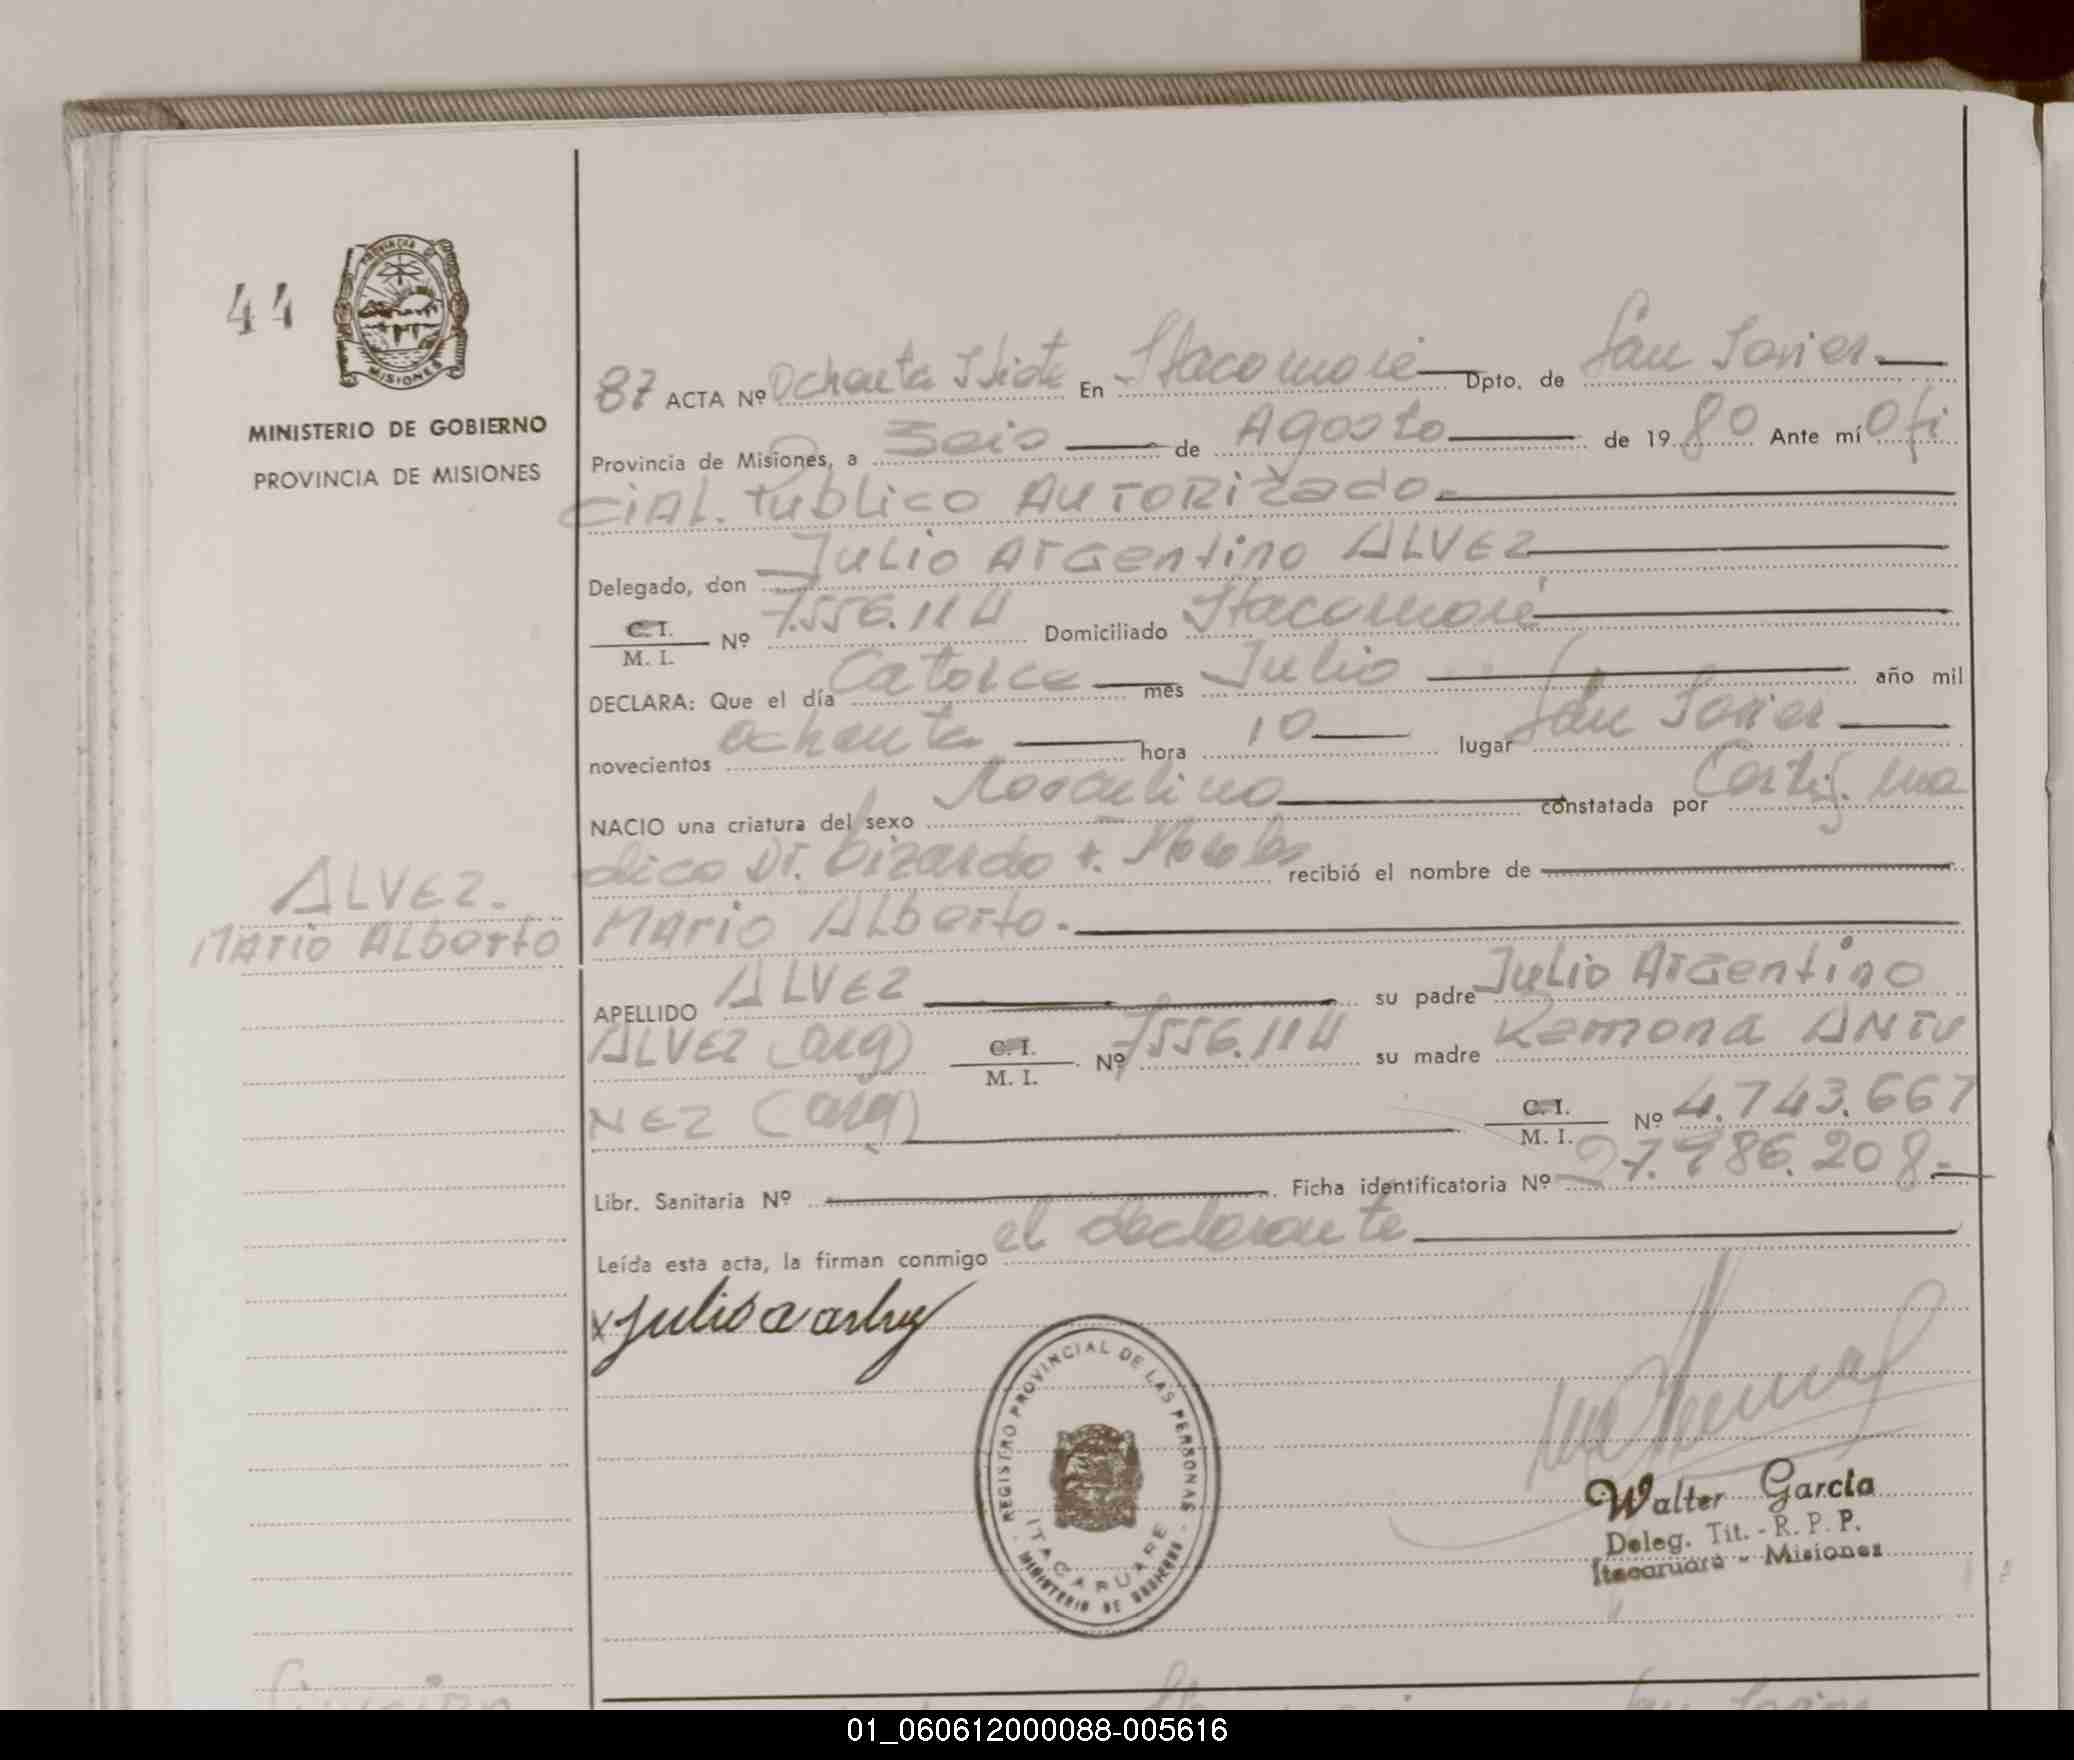 44
PROVINCIA DE
MISIONES
MINISTERIO DE GOBIERNO
PROVINCIA DE MISIONES
87 ACTA Nº Ochenta Siete En Itacaruaré Dpto. de San Javier
Provincia de Misiones, a Seis de Agosto de 1980 Ante mí Ofi
cial. Publico AUTORizado.
Delegado, don Julio Argentino ALVEZ
C. I.
M. I. Nº 7.556.114 Domiciliado Itacaruaré
DECLARA: Que el día Catorce mes Julio año mil
novecientos ochenta hora 10 lugar San Javier
NACIO una criatura del sexo Masculino constatada por Certif. Me
dico Dr. Lizardo + recibió el nombre de
Mario ALberto.
ALVEZ.
Mario ALberto
APELLIDO ALVEZ su padre Julio Argentino
ALVEZ (arg) C. I.
M. I. Nº 7556.114 su madre Ramona ANTU
NEZ (arg) C. I.
M. I. Nº 4.743.667
Libr. Sanitaria Nº Ficha identificatoria Nº 27.986.208.-
Leída esta acta, la firman conmigo el declarante
x Julio a
REGISTRO PROVINCIAL DE LAS PERSONAS
ITACARUARE
MINISTERIO DE GOBIERNO
Walter García
Deleg. Tit. - R. P. P.
Itacaruaré - Misiones
01_060612000088-005616